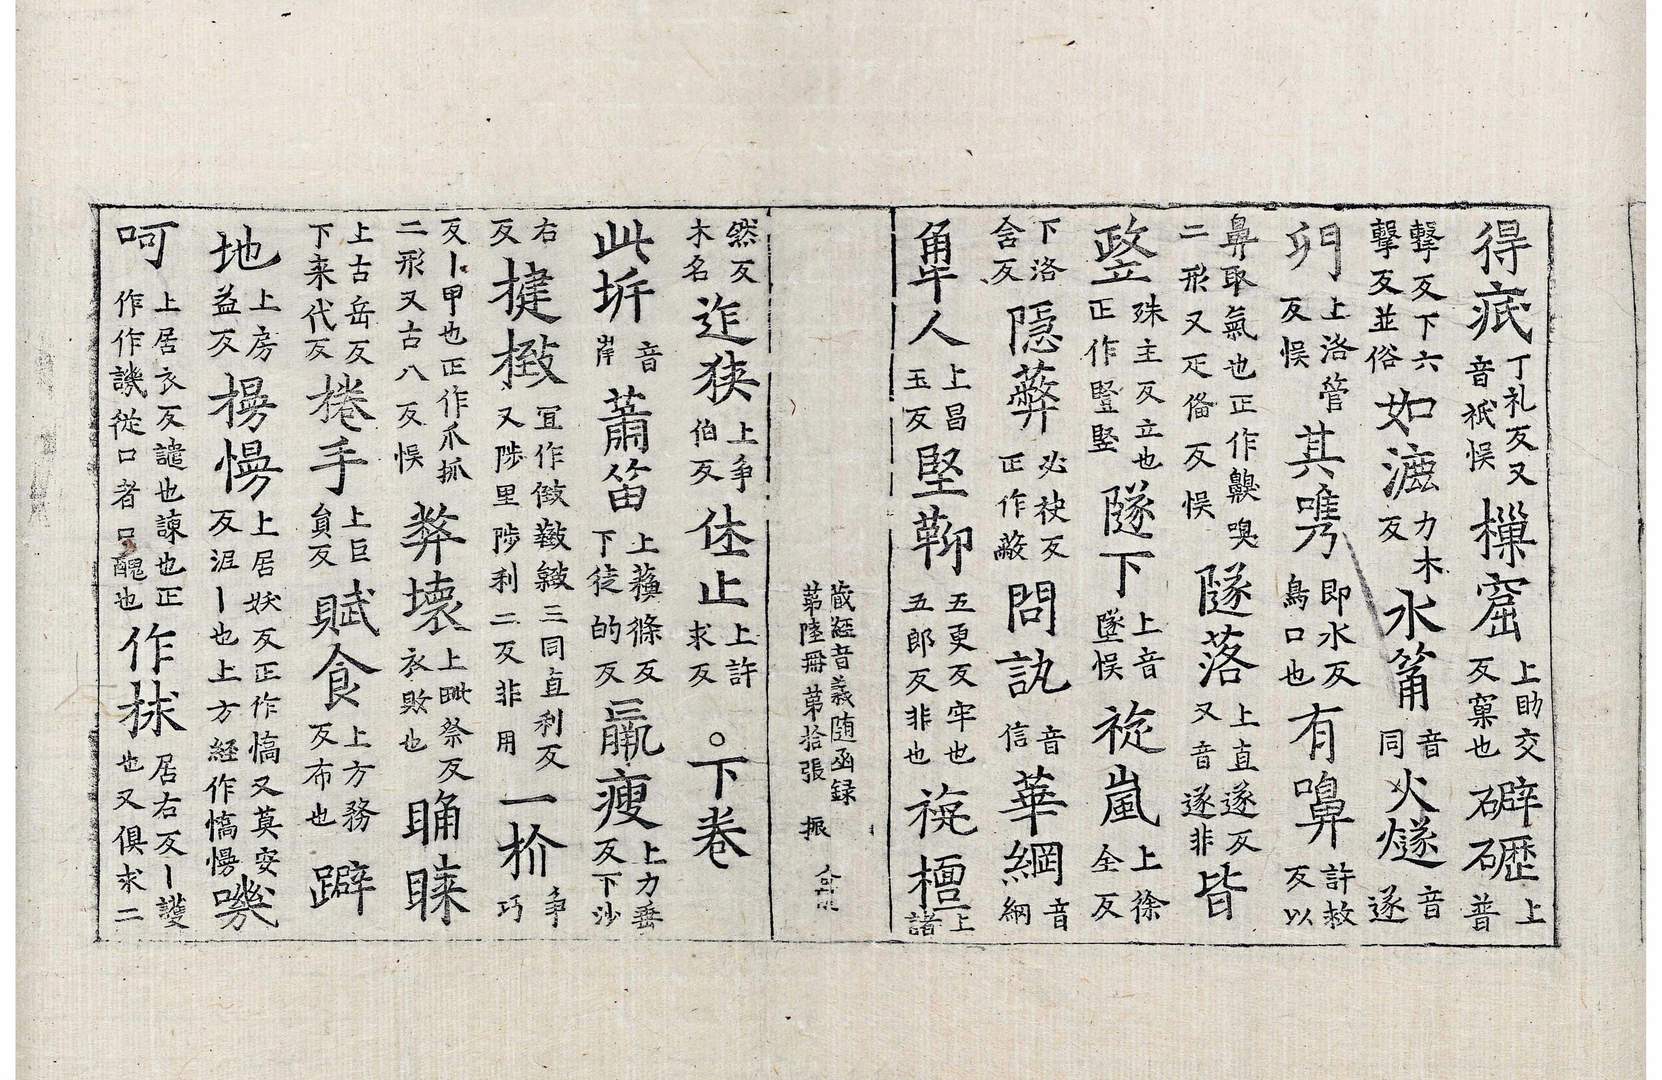 得疷丁礼反又音祇悮樔窟上助交反窠也礔礰上普
擊反下六擊反並俗如漉力木反水筩音同火燧音遂
夘上洛管反悮其㗱即水反鳥口也有嗅許救反以
鼻取氣也正作齅嗅二形又疋俻反悮隧落上直遂反又音遂非皆
竪殊主反立也正作豎竪隧下上音墜悮嵐上徐全反
下洛含反隱蔽必袂反正作蔽問訊音信華綱音網
人上昌玉反堅鞕五更反牢也五郎反非也檀上諸
藏經音義随函録第陸冊第拾張 振
然反木名迮狹上争伯反休止上許求反○下卷
此㘸音岸蕭笛上蘓條反下徒的反羸瘦上力垂反下沙
右反揵㨖冝作緻三同直利反又陟里陟利二反非用一扴争巧
反丨甲也正作爪抓二形又古八反悮弊壞上毗祭反衣敗也睊睞
上古岳反下来代反捲手上巨負反賦食上方務反布也躃
地上房益反榻慢上居妖反正作憍又莫安反泹丨也上方経作憍慢嘰
呵上居衣反譴也諫也正作作譏從口者口醜也作捄居右反丨護也又俱求二